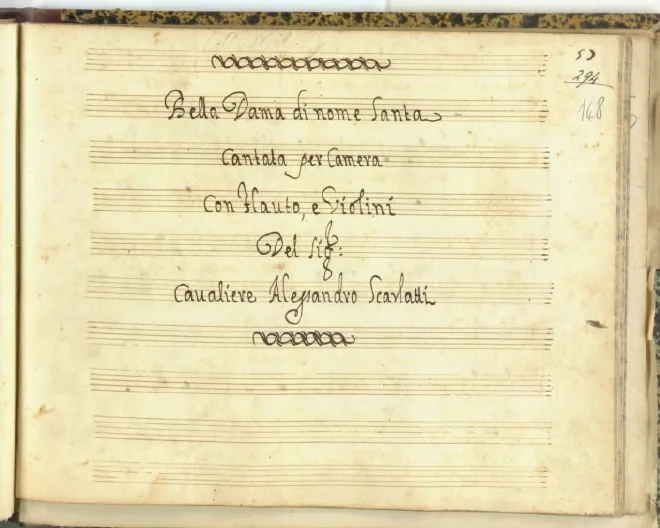 53
294
148
Bella Dama di nome Santa
Cantata per Camera
Con Flauto, e Violini
Del Sigr:
Cavaliere Alessandro Scarlatti